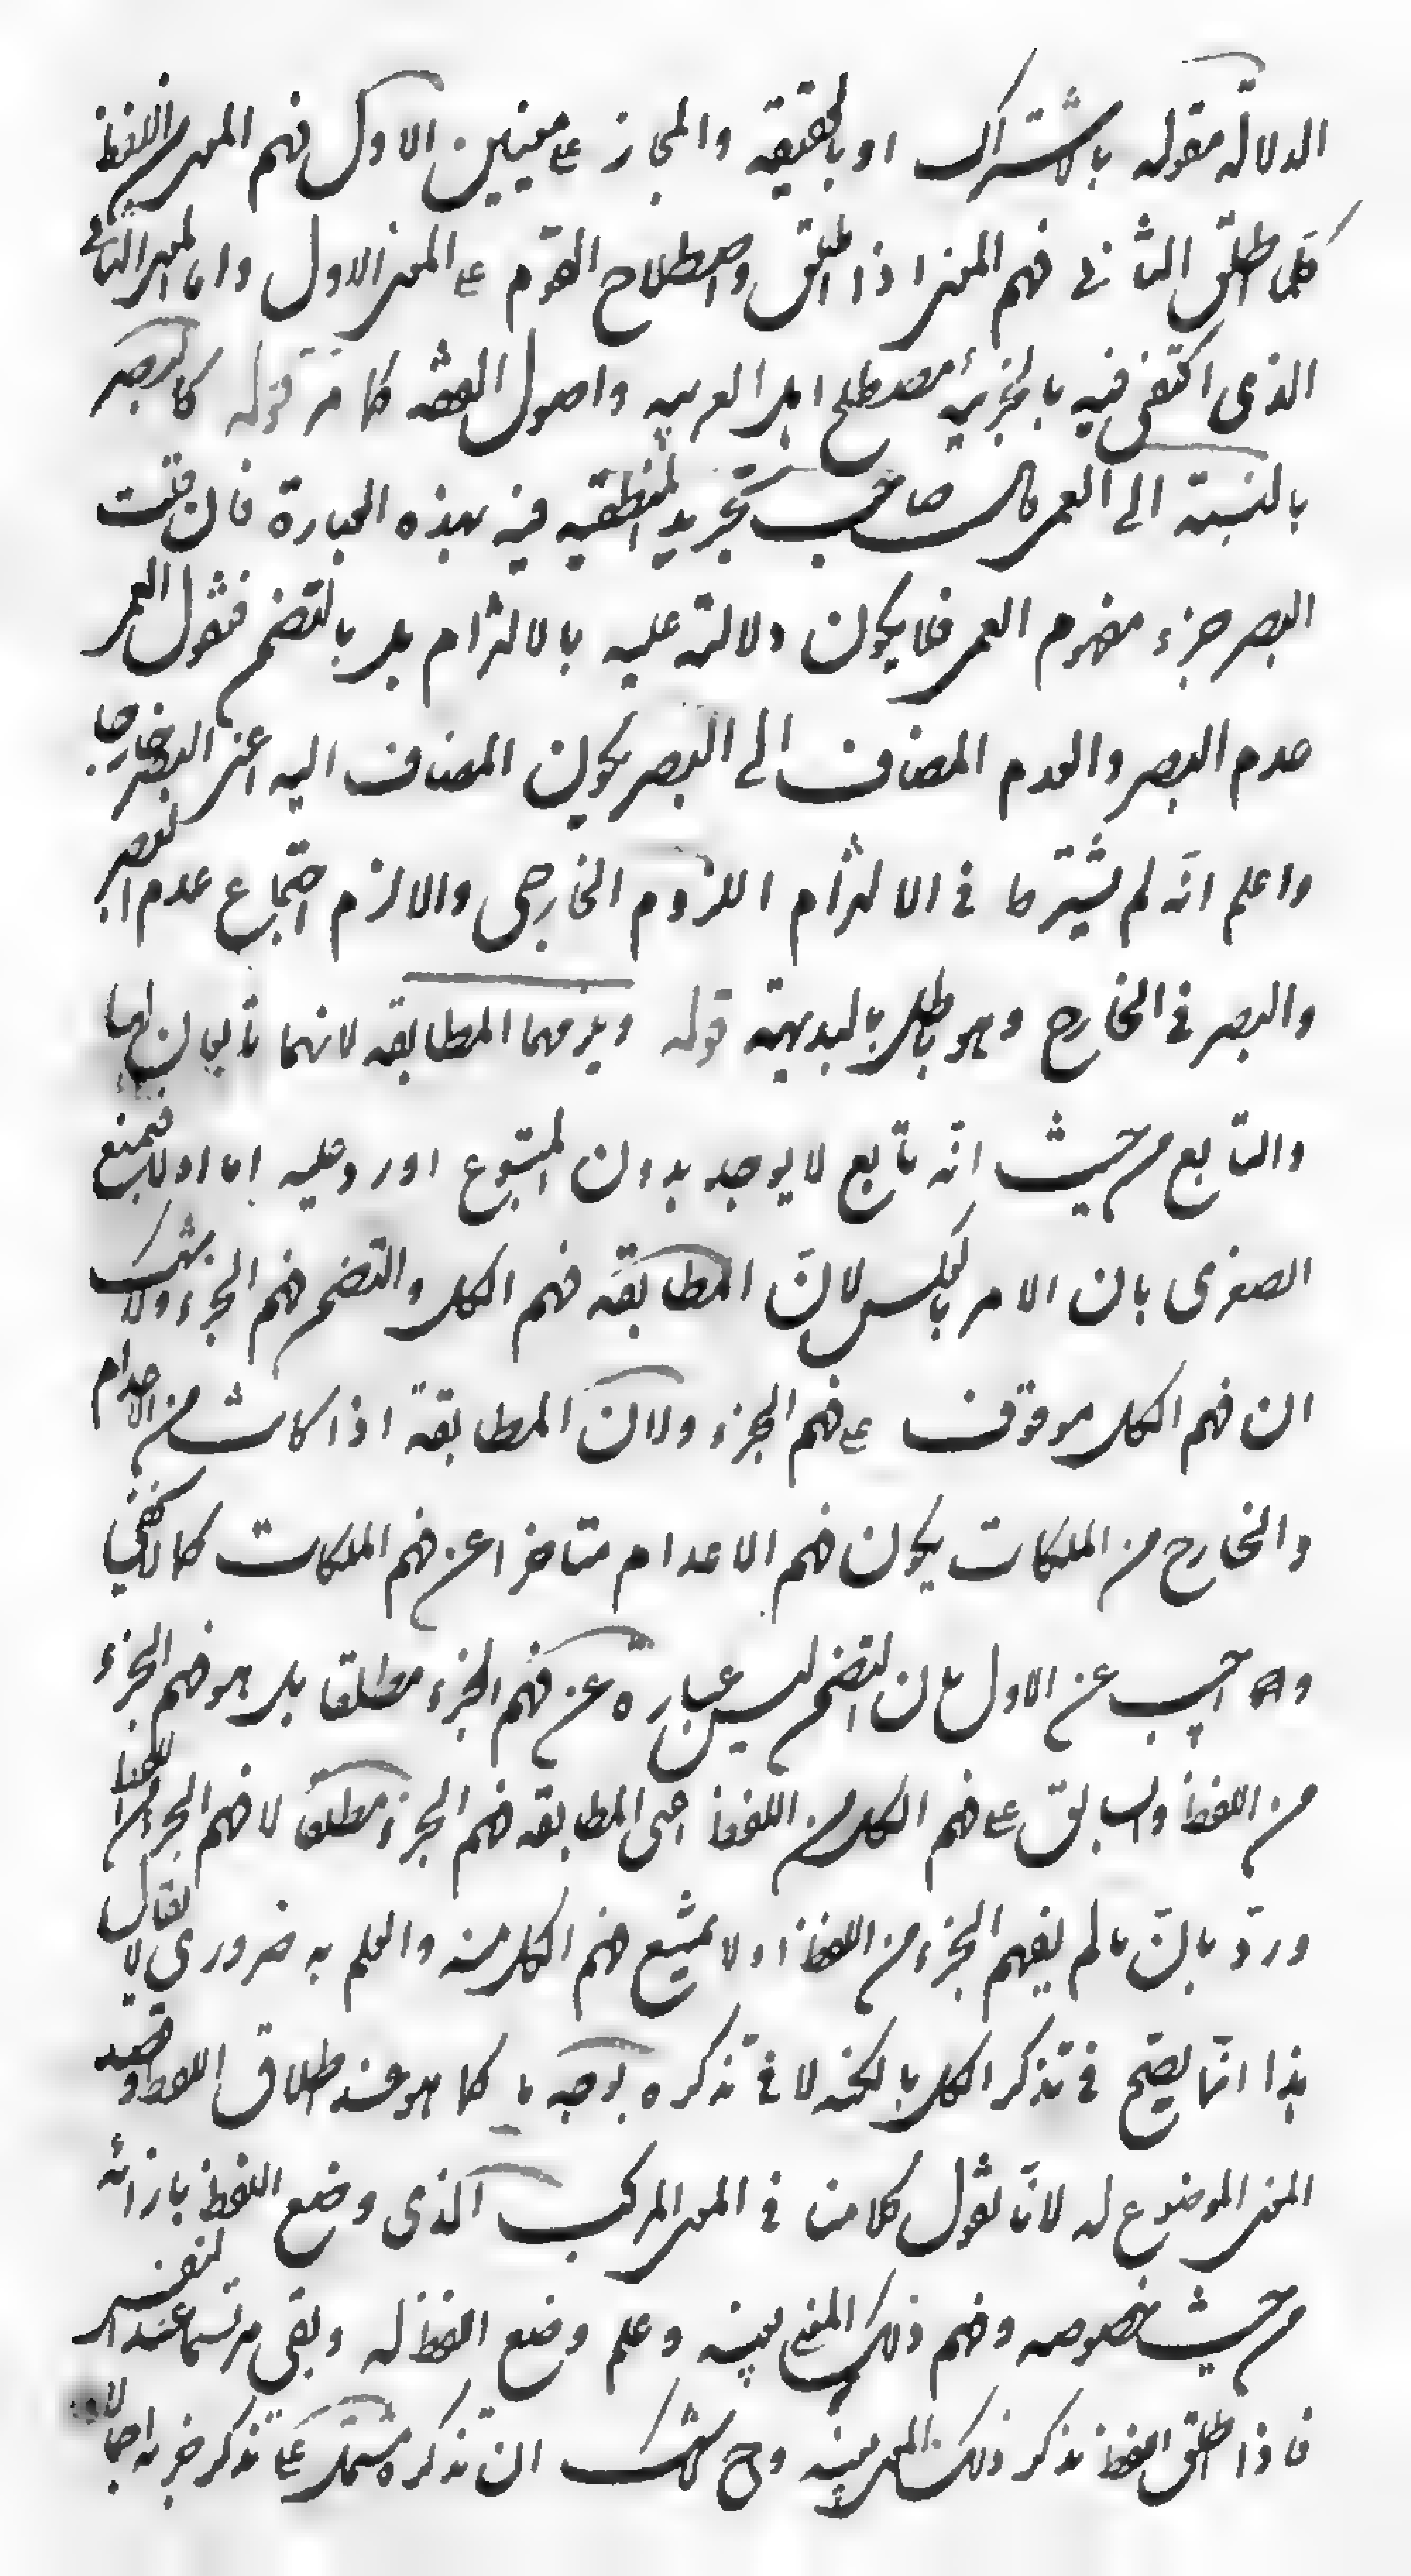 الدلالة مقولة بالاشتراك او بالحقيقة والمجاز ع معنيين الاول فهم المعنى من اللفظ
كلما اطلق الثاني فهم المعنى اذا اطلق واصطلاح القوم ع المعنى الاول واما المعنى الثاني
الذى اكتفى فيه بالجزئية مصطلح اهل العربية واصول الفقه كما مر قوله كالبصر
بالنسبة الى العمى قال صاحب تجريد المنطق فيه بهذه العبارة فان قلت
البصر جزء مفهوم العمى فلا يكون دلالته عليه بالالتزام بل بالتضمن فنقول العمى
عدم البصر والعدم المضاف الى البصر يكون المضاف اليه اعنى البصر خارجا
واعلم انه لم يشترط فى الالتزام اللزوم الخارجى والا لزم اجتماع عدم البصر
والبصر فى الخارج وهو باطل بالبديهة قوله ويلزمهما المطابقة لانهما تابعان لها
والتابع من حيث انه تابع لا يوجد بدون المتبوع اورد عليه اما اولا فبمنع
الصغرى بان الامر بالعكس لان المطابقة فهم الكل والتضمن فهم الجزء ولا شك
ان فهم الكل موقوف ع فهم الجزء ولان المطابقة اذا كانت من الاعدام
والخارج من الملكات يكون فهم الاعدام متاخرا عن فهم الملكات كما لا يخفى
واجيب عن الاول بان التضمن ليس عبارة عن فهم الجزء مطلقا بل هو فهم الجزء
من اللفظ والسابق ع فهم الكل من اللفظ اعنى المطابقة فهم الجزء مطلقا لا فهم الجزء من اللفظ
ورد بان ما لم يفهم الجزء من اللفظ اولا يمتنع فهم الكل منه والعلم به ضرورى لا يقال
هذا انما يصح فى تذكر الكل بالكنه لا فى تذكره بوجه ما كما هو عند اطلاق اللفظ وقصد
المعنى الموضوع له لانا نقول كلامنا فى المعنى المركب الذى وضع اللفظ بازائه
من حيث خصوصه وفهم ذلك المعنى بعينه وعلم وضع اللفظ له وبقى مرتسما عند النفس
فاذا اطلق اللفظ تذكر ذلك المعنى بعينه وح لا شك ان تذكره مشتمل ع تذكر جزئه اجمالا